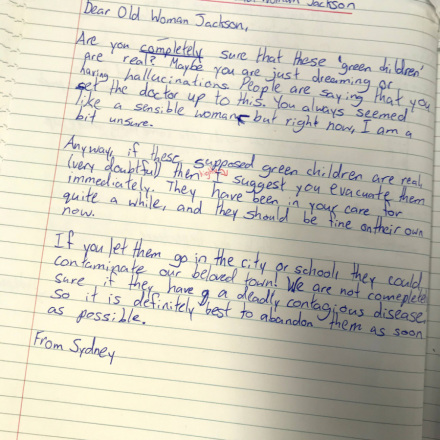 Woman Jackson
Dear Old Woman Jackson,
Are you completely sure that these 'green children'
are real? Maybe you are just dreaming or
having hallucinations. People are saying that you
set the doctor up to this. You always seemed
like a sensible woman, but right now, I am a
bit unsure.
Anyway, if these supposed green children are real
(very doubtful) then I suggest you evacuate them
immediately. They have been in your care for
quite a while, and they should be fine on their own
now.
If you let them go in the city or school, they could
contaminate our beloved town! We are not comeplete
sure if they have a deadly contagious disease,
so it is definitely best to abandon them as soon
as possible.
From Sydney